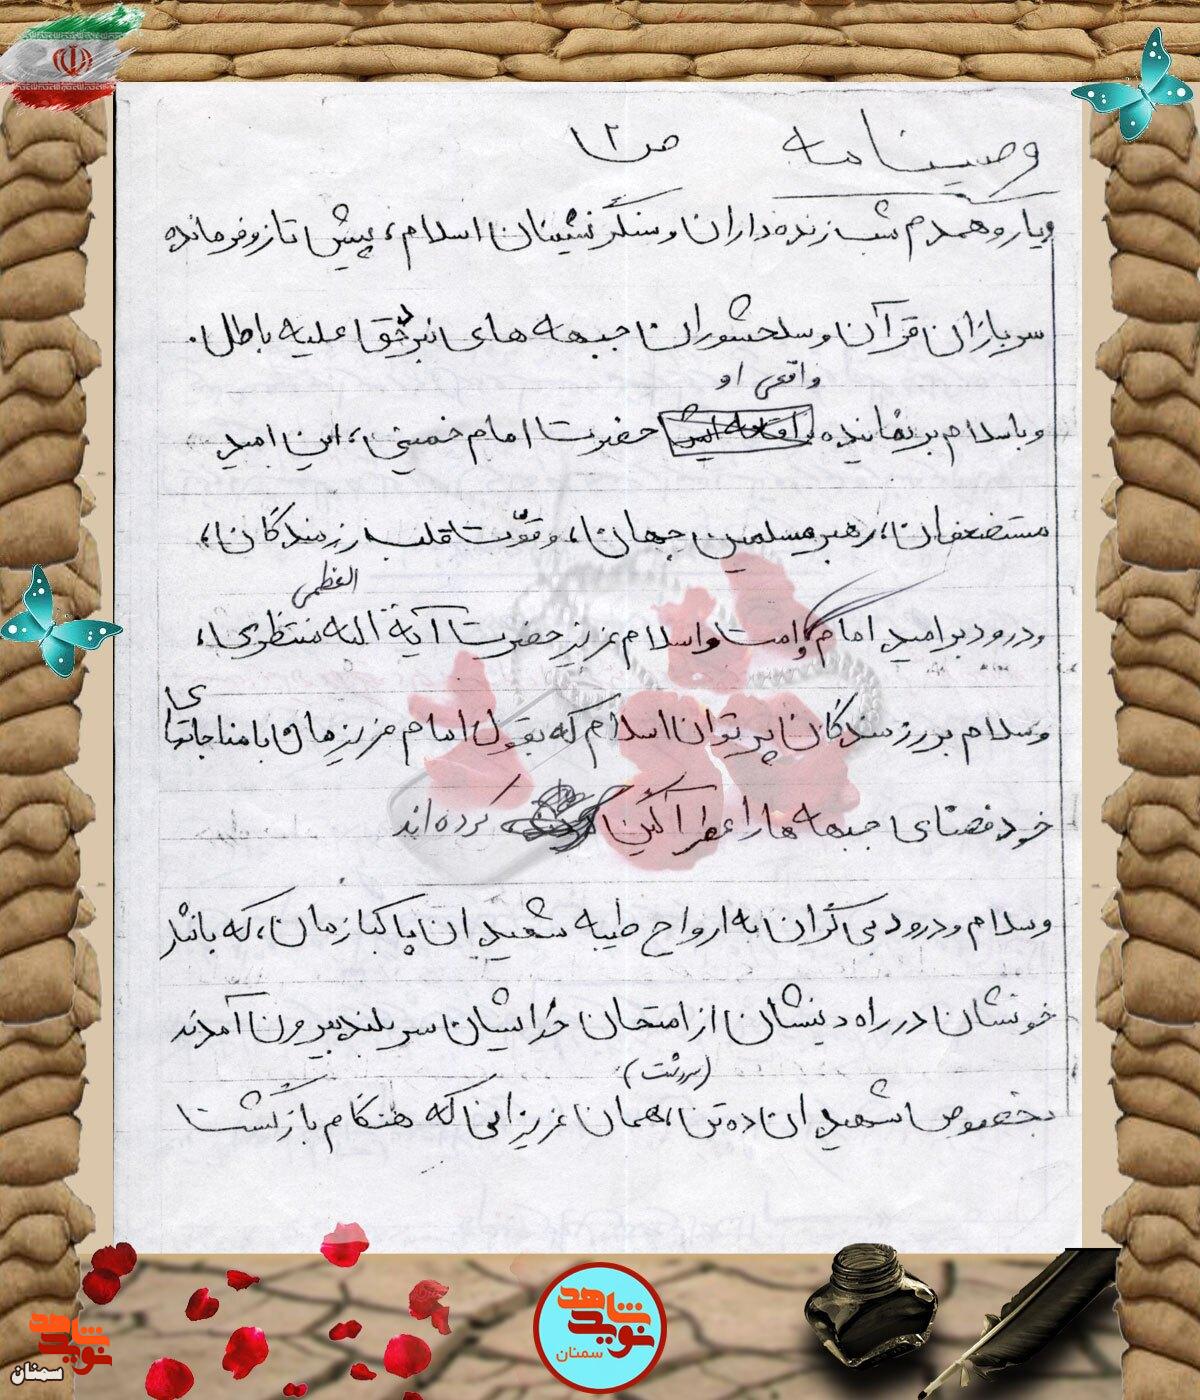 وصیتنامه ص ۲
ویار و همدم شب زنده داران و سنگر نشینان اسلام، پیش تاز و فرمانده
سربازان قرآن و سلحشوران جبهه های نبرد حق علیه باطل.
واقعی او
و باسلام بر نماینده حضرت امام خمینی، این امید
مستضعفان، رهبر مسلمین جهان، و قوّت قلب رزمندگان،
العظمی
و درود بر امید امام و امت و اسلام عزیز حضرت آیة الله منتظری،
وسلام بر رزمندگان پر توان اسلام که بقول امام عزیزمان با مناجاتهای
خود فضای جبهه ها را عطر آگین کرده اند
وسلام و درود بی کران به ارواح طیبه شهیدان پاکبازمان، که با نثار
خونشان در راه دینشان از امتحان خدائیشان سر بلند بیرون آمدند
بخصوص شهیدان ده تن، همان عزیزانی که هنگام بازگشت
شاهد
نوید
سمنان
شاهد
نوید
سمنان